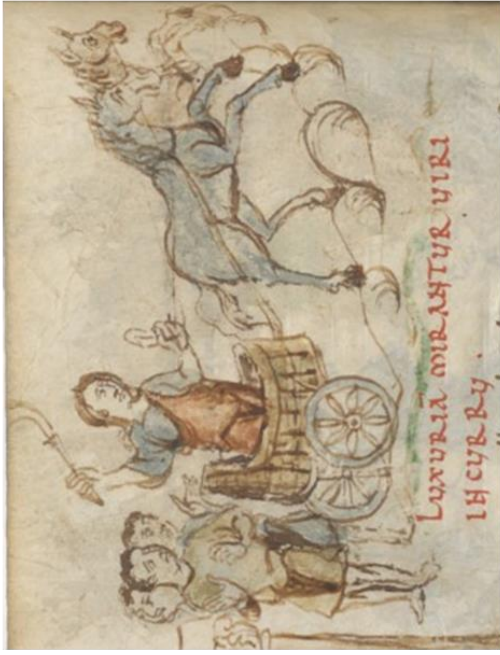 LUXURIA MIRANTUR UIRI
IN CURRU .